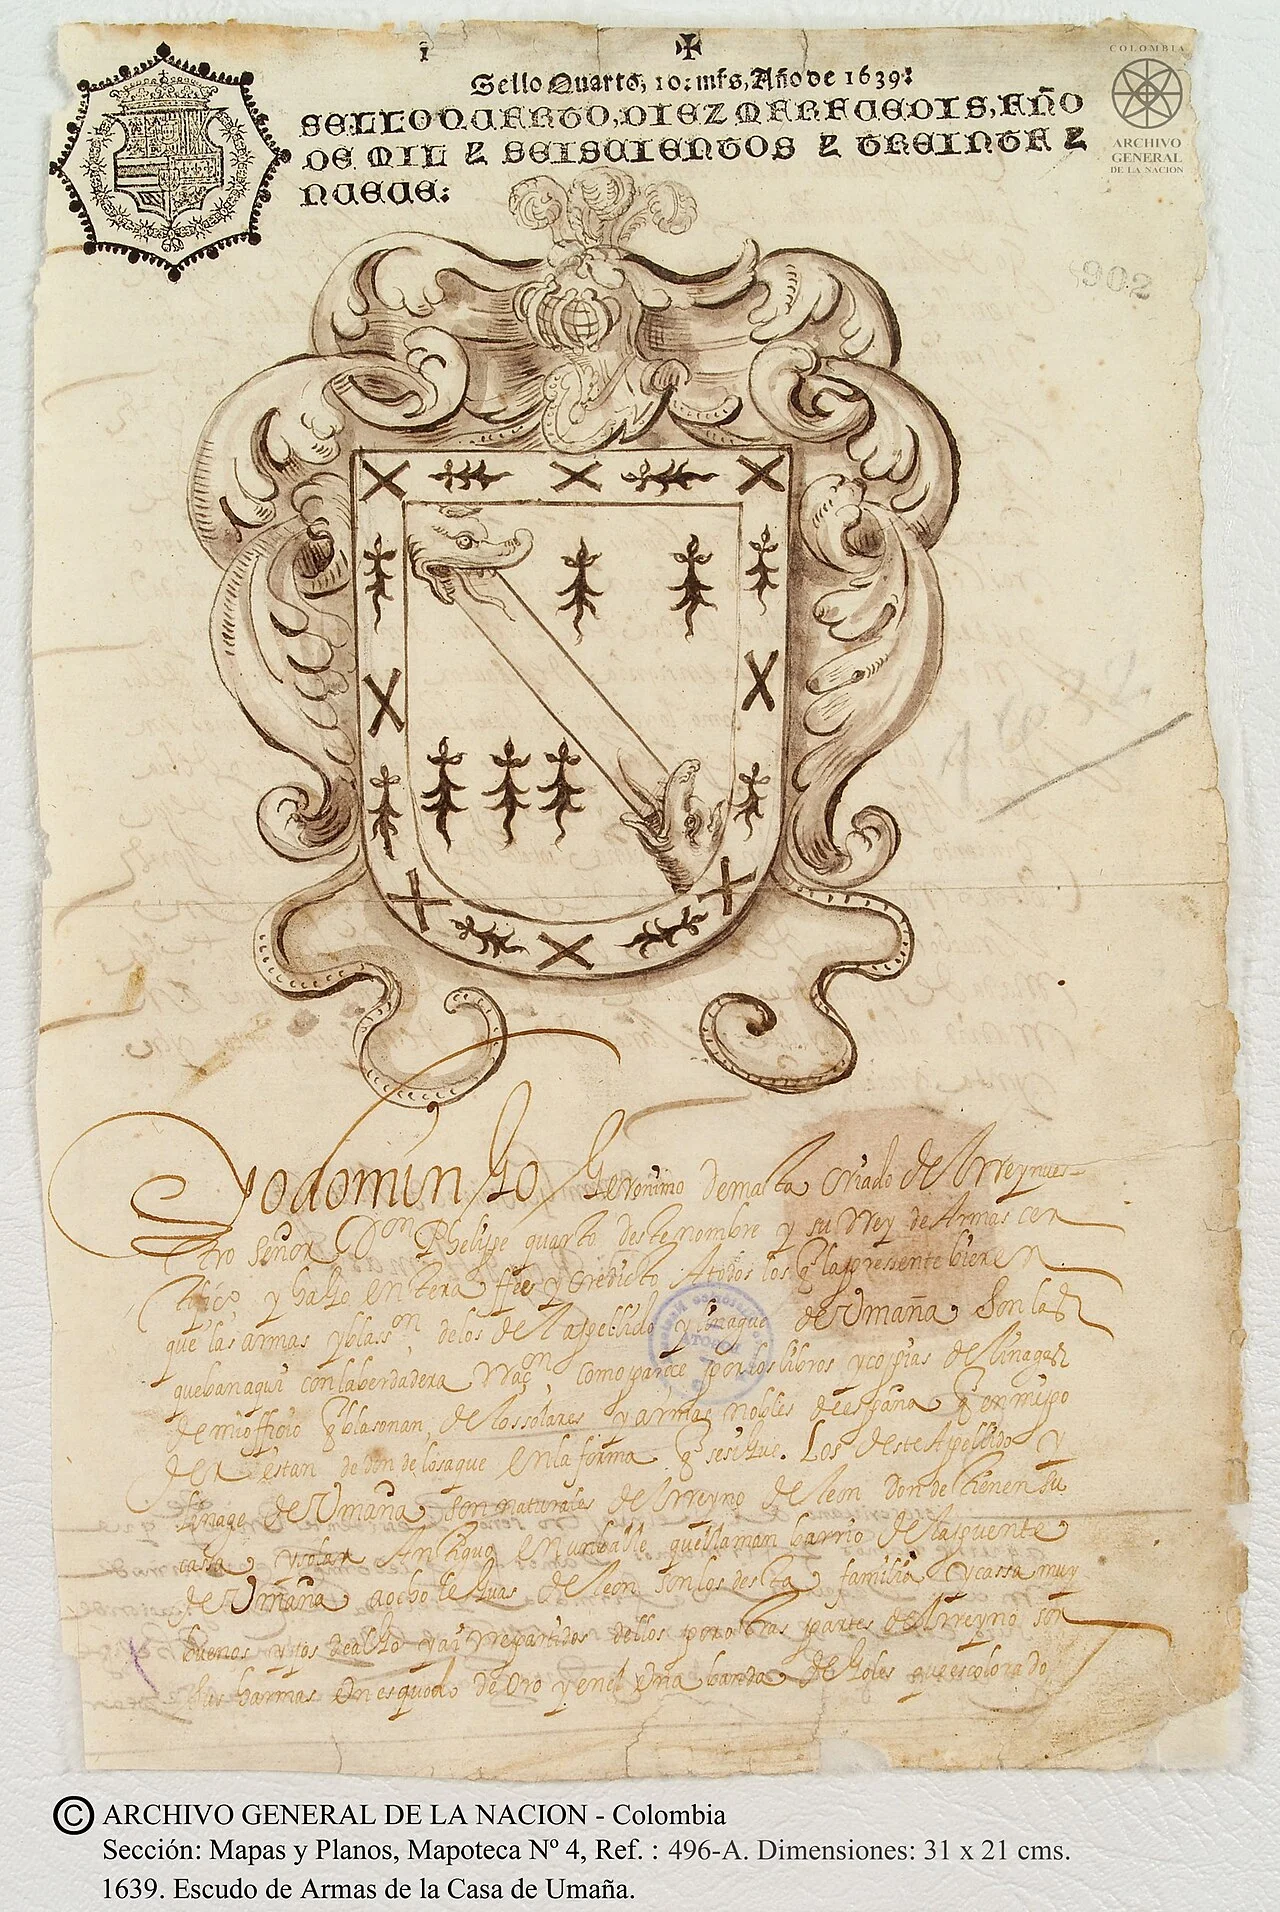 1
Sello Quarto, 10: mrs, Año de 1639:
SELLO QUARTO, DIEZ MARAUEDIS, AÑO
DE MIL Z SEISCIENTOS Z TREINTA Z
NUEUE:
COLOMBIA
ARCHIVO
GENERAL
DE LA NACION
902
Yo domingo Geronimo de mata Criado del Rrey nues
tro señor Don Phelipe quarto deste nombre y su Rrey de Armas cer
tifico y hago entera ffee y credicto A todos los q la presente bieren
que las armas y blasson de los del apellido y linage de Vmaña Son las
que ban aqui con la berdadera como parece por los libros y copias de linages
de mi officio q blasonan de los solares y armas nobles de españa q en mi po
der estan de donde los saque en la forma q se sigue. Los deste Apellido y
linage de Vmaña son naturales del Rreyno de leon donde tienen su
cassa y solar Antiguo en un balle que llaman barrio de la puente
de Vmaña a ocho leguas de leon son los desta familia y cassa muy
buenos yjos dealgo y ay rrepartidos dellos por otras partes del Rreyno son
sus harmas En esqudo de Oro y en el Vna banda de Goles que es colorado
© ARCHIVO GENERAL DE LA NACION - Colombia
Sección: Mapas y Planos, Mapoteca Nº 4, Ref. : 496-A. Dimensiones: 31 x 21 cms.
1639. Escudo de Armas de la Casa de Umaña.